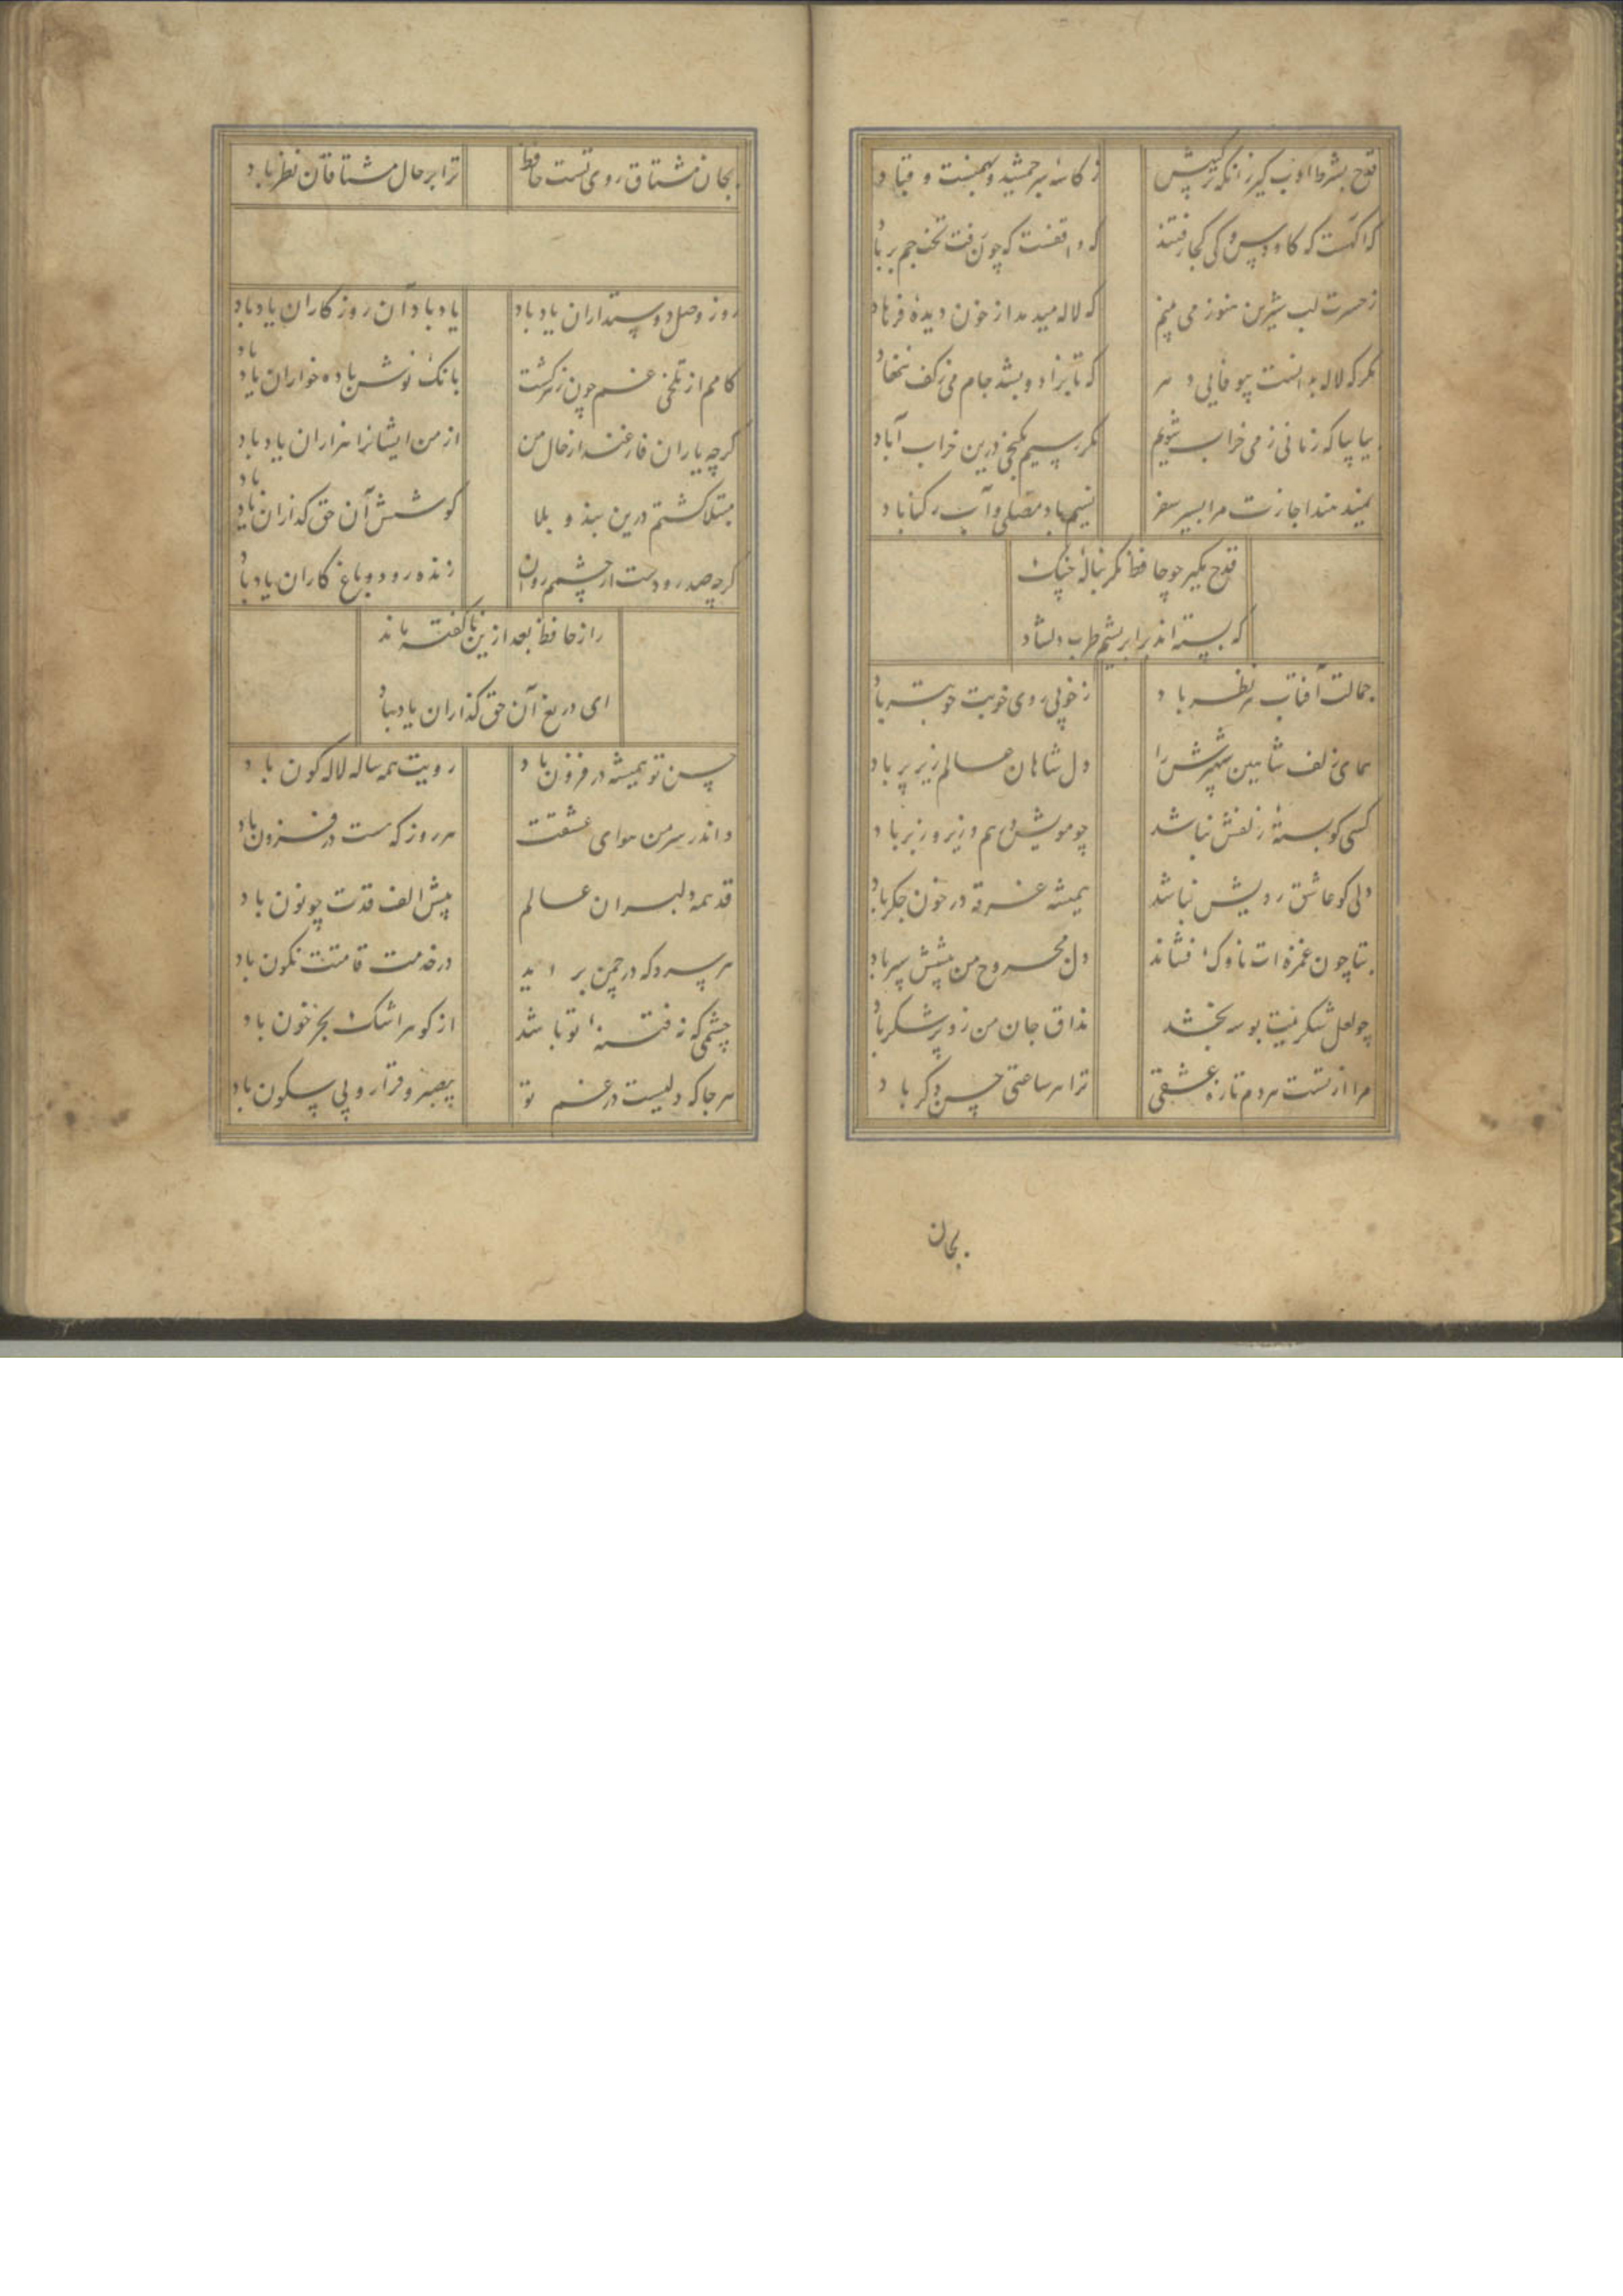 قدح بشرط ادب گیر زانکه ترکیبش
ز کاسهٔ سر جمشید و بهمنست و قباد
که آگهست که کاووس و کی کجا رفتند
که واقفست که چون رفت تخت جم بر باد
ز حسرت لب شیرین هنوز می بینم
که لاله میدمد از خون دیده فرهاد
مگر که لاله بدانست بیوفایی دهر
که تا بزاد و بشد جام می ز کف ننهاد
بیا بیا که زمانی ز می خراب شویم
مگر رسیم بگنجی درین خراب آباد
نمیدهند اجازت مرا بسیر سفر
نسیم باد مصلی و آب رکناباد
قدح مگیر چو حافظ مگر بنالهٔ چنگ
که بسته اند بر ابریشم طرب دلشاد
جمالت آفتاب هر نظر باد
ز خوبی روی خوبت خوبتر باد
همای زلف شاهین شهپرش را
دل شاهان عالم زیر پر باد
کسی کو بستهٔ زلفش نباشد
چو مویش درهم و زیر و زبر باد
دلی کو عاشق رویش نباشد
همیشه غرقه در خون جگر باد
بتا چون غمزه ات ناوک فشاند
دل مجروح من پیشش سپر باد
چو لعل شکرینت بوسه بخشد
مذاق جان من زو پر شکر باد
مرا از تست هر دم تازه عشقی
ترا هر ساعتی حسن دگر باد
بجان
بجان مشتاق روی تست حافظ
ترا بر حال مشتاقان نظر باد
روز وصل دوستداران یاد باد
یاد باد آن روزگاران یاد باد
کامم از تلخی غم چون زهر گشت
بانگ نوش باده خواران یاد باد
گرچه یاران فارغند از حال من
از من ایشانرا هزاران یاد باد
مبتلا گشتم درین بند و بلا
کوشش آن حق گذاران یاد باد
گرچه صد رودست از چشمم روان
زنده رود و باغ کاران یاد باد
راز حافظ بعد ازین ناگفته ماند
ای دریغ آن حق گذاران یاد باد
حسن تو همیشه در فزون باد
رویت همه ساله لاله گون باد
و اندر سر من هوای عشقت
هر روز که هست در فزون باد
قد همه دلبران عالم
پیش الف قدت چو نون باد
هر سرو که در چمن بر آید
در خدمت قامتت نگون باد
چشمی که نه فتنهٔ تو باشد
از گوهر اشک بجز خون باد
هر جا که دلیست در غم تو
بیصبر و قرار و بی سکون باد